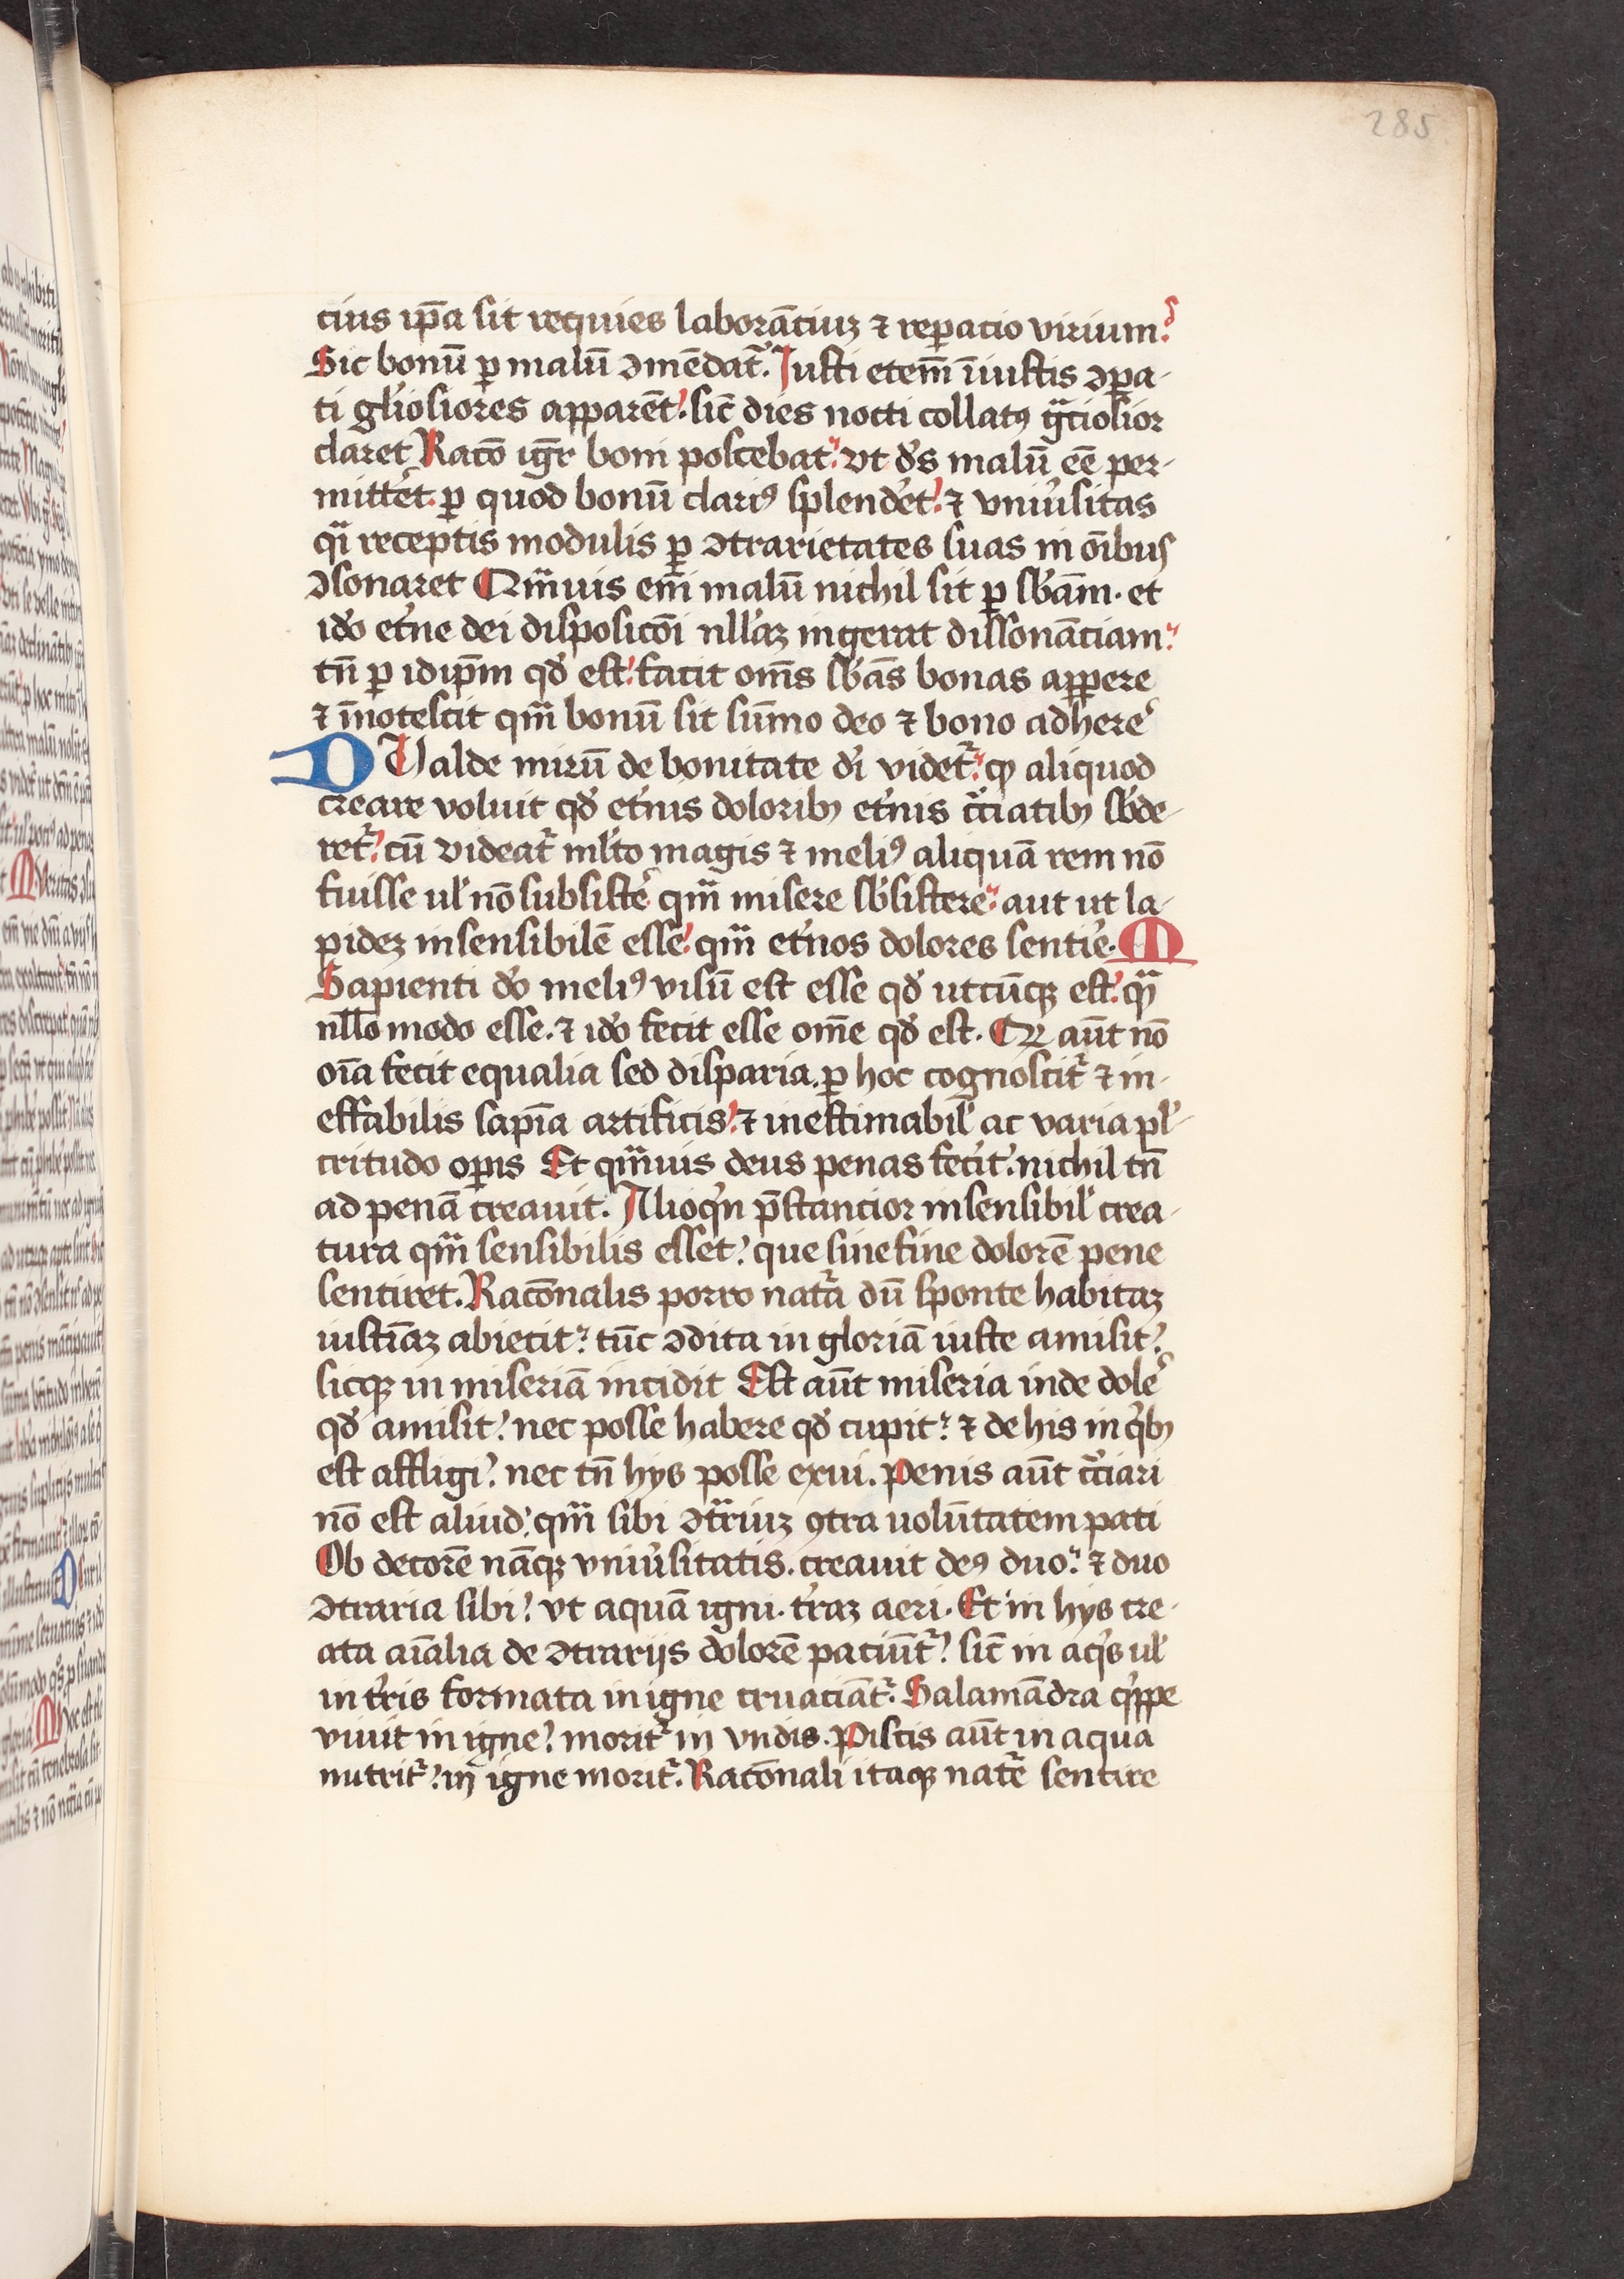 285
cius ip̄a sit requies laborāciuꝫ ⁊ rep̄acio virium.
Sic bonū ꝑ malū ↄmēdat᷑. Iusti etem̄ īiustis ↄꝑa-
ti gl̓iosiores apparēt. sic̄ dies nocti collatꝰ gͣciosior
claret Racō igr̄ boni poscebat. vt dꝰs malū eē per-
mitt̓et. ꝑ quod bonū clariꝰ splend̓et. ⁊ vniu̓sitas
qͣi receptis modulis ꝑ ↄtrarietates suas in om̄ibus
ↄsonaret Qm̄uis em̄ malū nichil sit ꝑ sb̓am̄. et
id̓o et̓ne dei disposicōi nll̓aꝫ ingerat dissonāciam.
tn̄ ꝑ idip̄m qd̓ est. facit om̄s sb̓as̄ bonas apꝑere
⁊ īnotescit qm̄ bonū sit sum̄o deo ⁊ bono adhere᷑
D Valde mirū de bonitate d̓i videt᷑. ꝙ aliquod
creare voluit qd̓ et̓nis doloribꝫ et̓nis cͬciatibꝫ sb̓de-
ret᷑. cū videat᷑ ml̓to magis ⁊ meliꝰ aliquā rem nō
fuisse ul̓ nō subsiste᷑ qm̄ misere sb̓sistere. aut ut la-
pideꝫ insensibilē esse. qm̄ et̓nos dolores senti᷑e. M
Sapienti d̓o meliꝰ visū est esse qd̓ utcūqꝫ est. qͣ
nll̓o modo esse. ⁊ id̓o fecit esse om̄e qd̓ est. Qꝛ aūt nō
oīa fecit equalia sed disparia. ꝑ hoc cognoscit᷑ ⁊ in-
effabilis sapīa artificis. ⁊ inestimabil̓ ac varia pl̓-
critudo oꝑis Et qm̄uis deus penas fecit. nichil tn̄
ad penā creauit. Alioqͥn p̄stancior insensibil̓ crea-
tura qm̄ sensibilis esset. que sine fine dolorē pene
sentiret. Racōnalis porro nat᷑a dū sponte habitaꝫ
iusticīaꝫ abiecit. tūc ↄdita in gloriā iuste amisit.
sicqꝫ in miseriā incidit Est aūt miseria inde dole᷑
qd̓ amisit. nec posse habere qd̓ cupit. ⁊ de his in qͥbꝫ
est affligi. nec tn̄ hys posse exui. Penis aūt cͬciari
nō est aliud. qm̄ sibi ↄtͬriuꝫ ꝯtra uolūtatem pati
Ob decorē nāqꝫ vniu̓sitatis. creauit deꝰ duo. ⁊ duo
ↄtraria sibi. vt aquā igni. t̓raꝫ aeri. Et in hys cre-
ata aīalia de ↄtrarijs dolorē paciūt᷑. sic̄ in aqͥs ul̓
in t̓ris formata in igne cruaciāt᷑. Salamādra qͥppe
viuit in igne. morit᷑ in vndis. Piscis aūt in aqua
nutrit᷑. in igne morit᷑. Racōnali itaqꝫ nat᷑e sentire